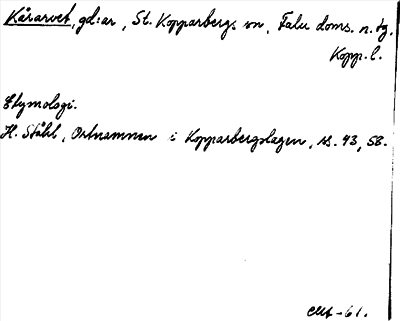 Kårarvet, gd:ar, St. Kopparbergs sn, Falu doms. n. tg.
Kopp. l.
Etymologi.
H. Ståhl, Ortnamnen i Kopparbergslagen, ss. 43, 58.
-61.